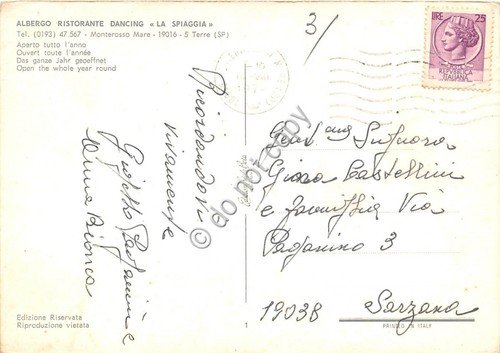 ALBERGO RISTORANTE DANCING « LA SPIAGGIA »
Tel. (0193) 47.567 - Monterosso Mare - 19016 - 5 Terre (SP)
Aperto tutto l'anno
Ouvert toute l'année
Das ganze Jahr geoeffnet
Open the whole year round
3/
LIRE 25
REPUBBLICA
ITALIANA
Ricordandovi
vivamente
Anna Bianca
Gent.ma Signora
Castellini
e famiglia Via
Paganino 3
19038 Sarzana
do not copy
Edizione Riservata
Riproduzione vietata
1
PRINTED IN ITALY